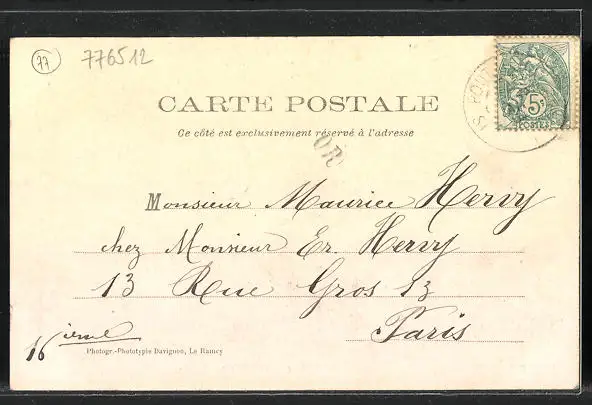 77 776512
CARTE POSTALE
Ce côté est exclusivement réservé à l'adresse
OR
Monsieur Maurice Hervy
chez Monsieur Er. Hervy
13 Rue Gros 13
Paris
16 ième
Photogr.-Phototypie Davignon, Le Raincy
5c
POSTES